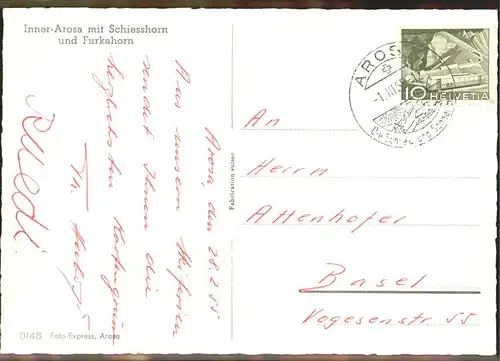 Inner-Arosa mit Schiesshorn
und Furkahorn
Arosa, den 28.2.55
Aus unsern Skiferien
sendet Ihnen die
herzlichsten Kartengrüsse
Ruedi
Fabrication suisse
AROSA
-1.III.
10 HELVETIA
An
Herrn
Attenhofer
Basel
Vogesenstr. 55
0148 Foto-Express, Arosa